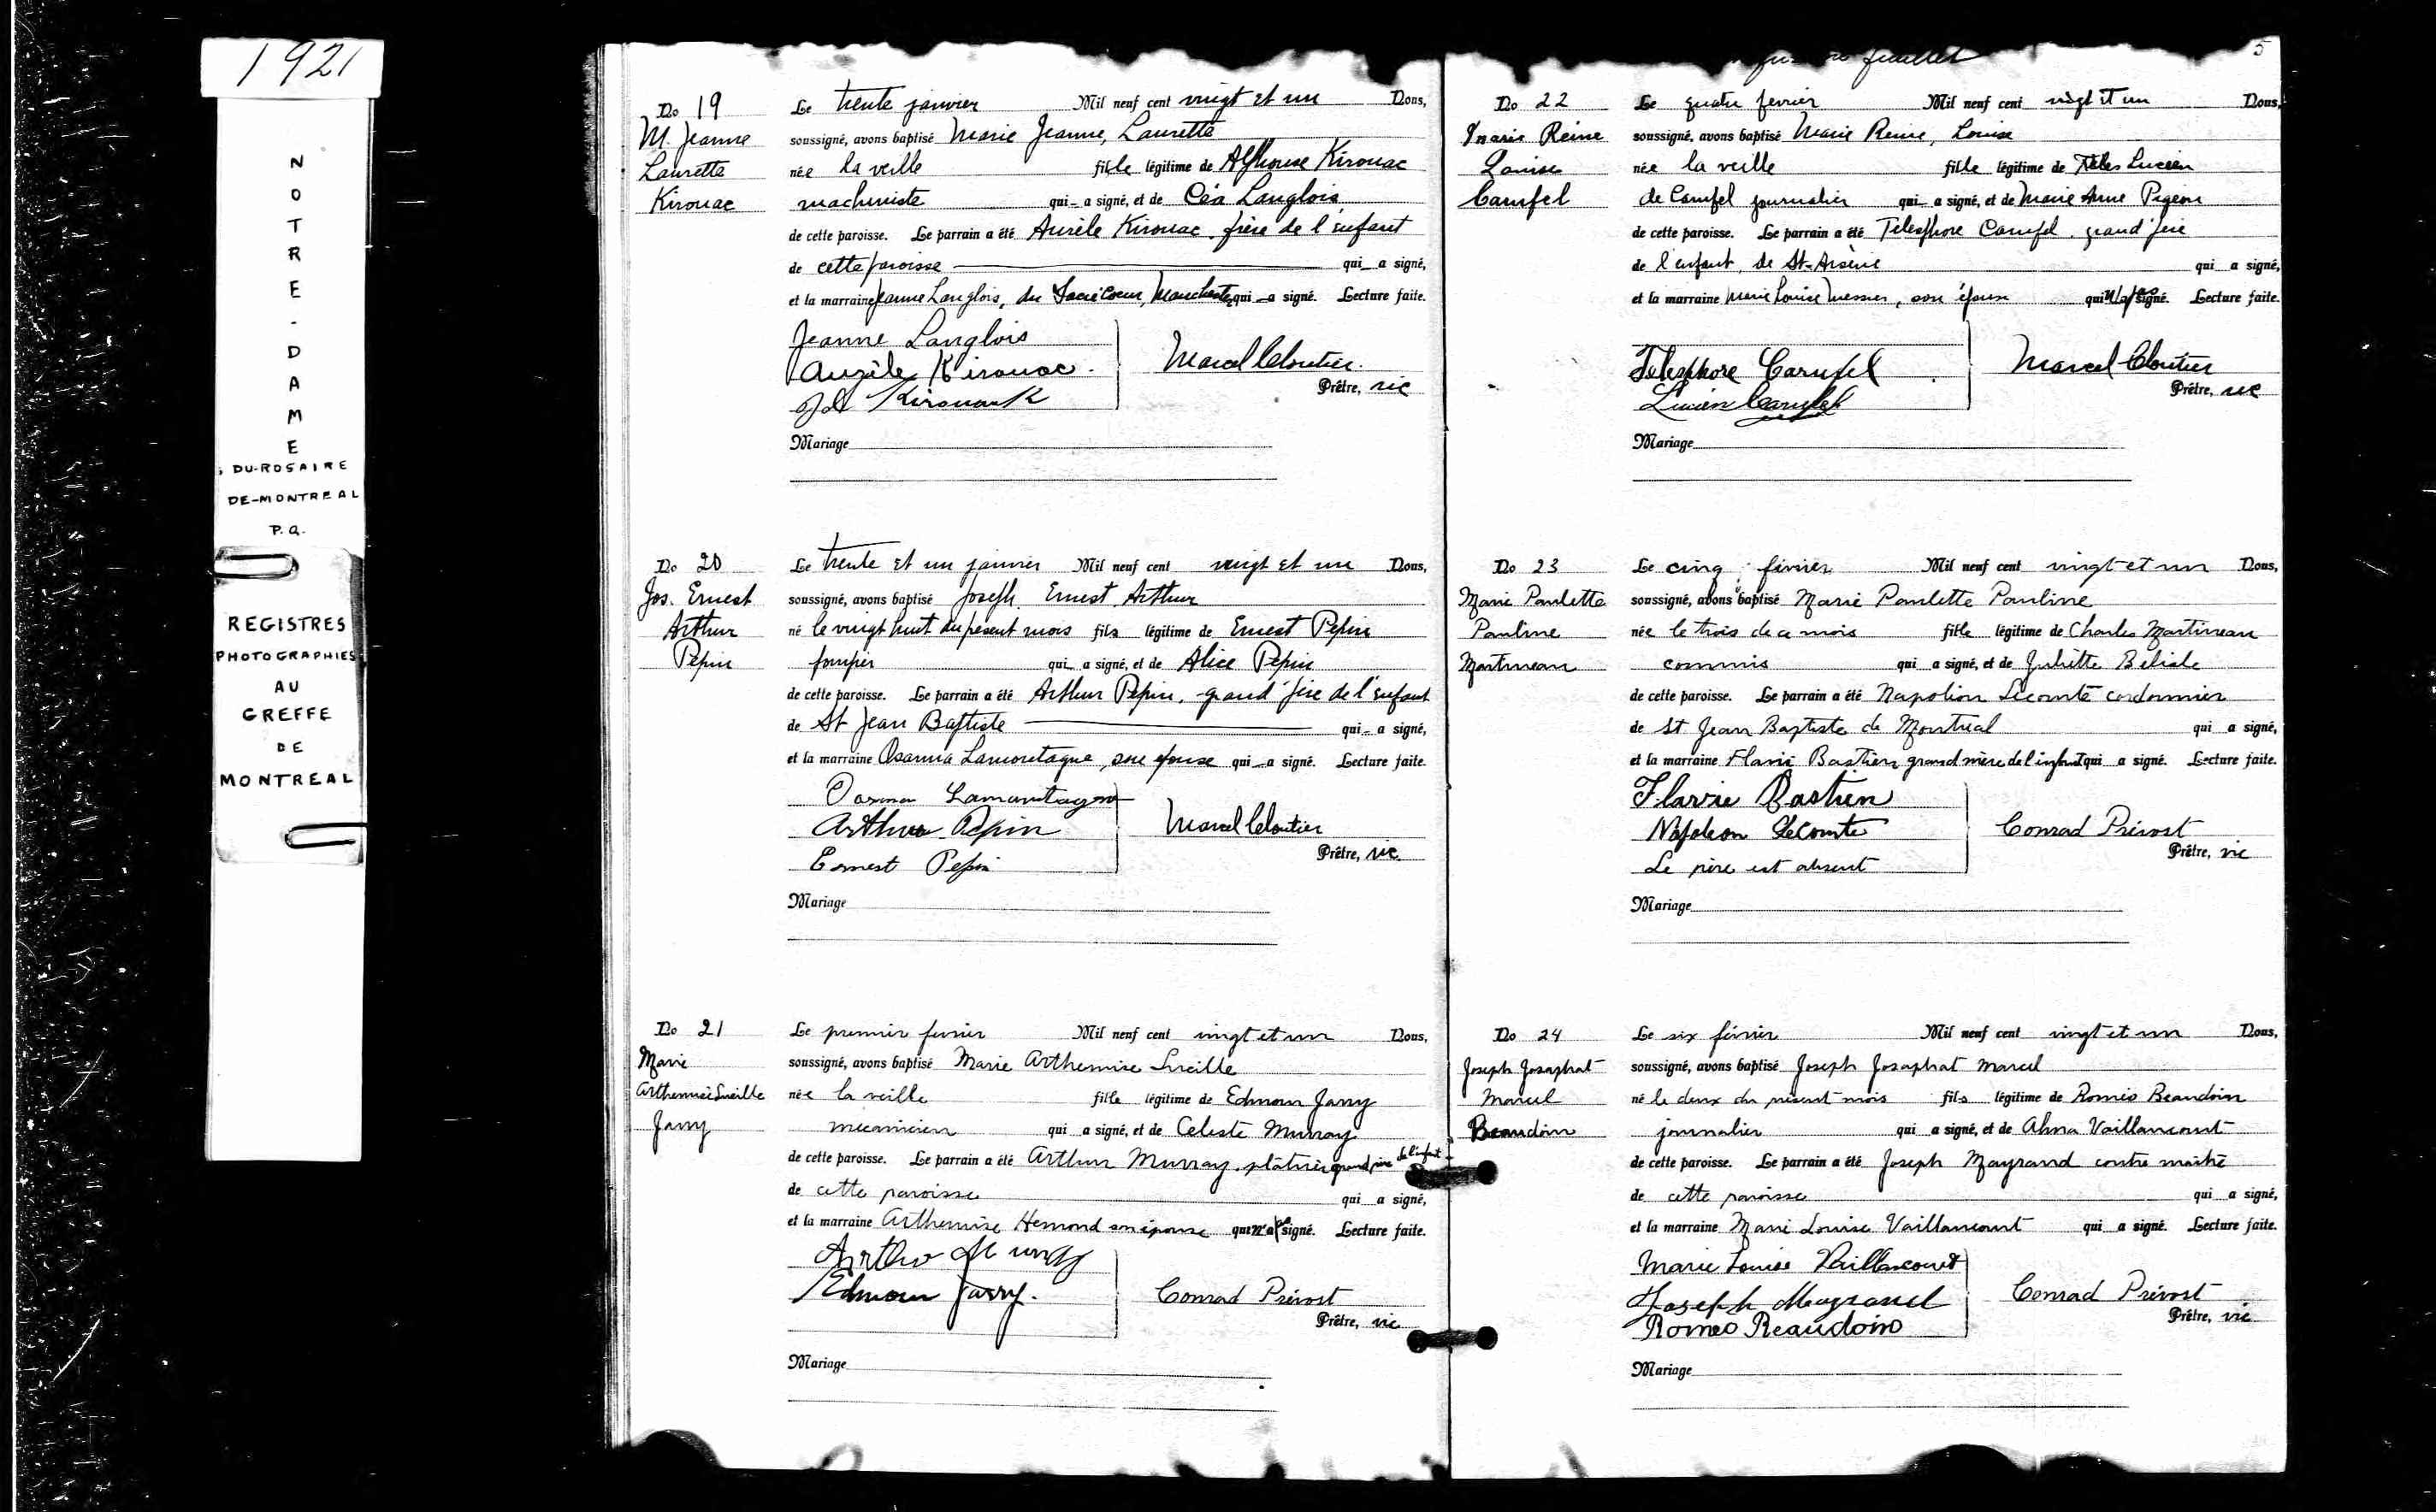 1921
NOTRE-DAME
DU-ROSAIRE
DE-MONTREAL
P.Q.
REGISTRES
PHOTOGRAPHIES
AU
GREFFE
DE
MONTREAL
No 19
M. Jeanne
Laurette
Kirouac
Le trente janvier Mil neuf cent vingt et un Nous,
soussigné, avons baptisé Marie Jeanne, Laurette
née la veille fille légitime de Alphonse Kirouac
machiniste qui a signé, et de Céa Langlois
de cette paroisse. Le parrain a été Aurèle Kirouac, frère de l'enfant
de cette paroisse qui a signé,
et la marraine Jeanne Langlois, du Sacré Coeur, Manchester, qui a signé. Lecture faite.
Jeanne Langlois
Aurèle Kirouac.
Kirouack
Marcel Cloutier.
Prêtre, vic
Mariage
No 20
Jos. Ernest
Arthur
Pepin
Le trente et un janvier Mil neuf cent vingt et un Nous,
soussigné, avons baptisé Joseph Ernest Arthur
né le vingt huit du présent mois fils légitime de Ernest Pepin
pompier qui a signé, et de Alice Pepin
de cette paroisse. Le parrain a été Arthur Pepin, grand'père de l'enfant
de St Jean Baptiste qui a signé,
et la marraine Osanna Lamontagne, son épouse qui a signé. Lecture faite.
Lamontagne
Arthur Pepin
Ernest Pepin
Marcel Cloutier
Prêtre, vic
Mariage
No 21
Marie
Arthemise Lucille
Jarry
Le premier fevrier Mil neuf cent vingt et un Nous,
soussigné, avons baptisé Marie Arthemise Lucille
née la veille fille légitime de Edmour Jarry
mecanicien qui a signé, et de Celeste Murray
de cette paroisse. Le parrain a été Arthur Murray, plâtrier, grand père de l'enfant
de cette paroisse qui a signé,
et la marraine Arthemise Hemond son épouse qui n'a pas signé. Lecture faite.
Arthur Murray
Edmour Jarry.
Conrad Prévost
Prêtre, vic
Mariage
feuillet
5
No 22
Marie Reine
Louise
Carufel
Le quatre fevrier Mil neuf cent vingt et un Nous,
soussigné, avons baptisé Marie Reine, Louise
née la veille fille légitime de Lucien
de Carufel journalier qui a signé, et de Marie Anne Pigeon
de cette paroisse. Le parrain a été Télesphore Carufel, grand'père
de l'enfant, de St-Arsène qui a signé,
et la marraine Marie Louise Messier, son épouse qui n'a pas signé. Lecture faite.
Telesphore Carufel
Lucien Carufel
Marcel Cloutier
Prêtre, vic
Mariage
No 23
Marie Paulette
Pauline
Martineau
Le cinq février Mil neuf cent vingt et un Nous,
soussigné, avons baptisé Marie Paulette Pauline
née le trois de ce mois fille légitime de Charles Martineau
commis qui a signé, et de Juliette Belisle
de cette paroisse. Le parrain a été Napoléon Lecomte cordonnier
de St Jean Baptiste de Montréal qui a signé,
et la marraine Flavie Bastien grand mère de l'enfant qui a signé. Lecture faite.
Flavie Bastien
Napoleon Lecomte
Le père est absent
Conrad Prévost
Prêtre, vic
Mariage
No 24
Joseph Josaphat
Marcel
Beaudoin
Le six février Mil neuf cent vingt et un Nous,
soussigné, avons baptisé Joseph Josaphat Marcel
né le deux du présent mois fils légitime de Roméo Beaudoin
journalier qui a signé, et de Alma Vaillancourt
de cette paroisse. Le parrain a été Joseph Mayrand contre maître
de cette paroisse qui a signé,
et la marraine Marie Louise Vaillancourt qui a signé. Lecture faite.
Marie Louise Vaillancourt
Joseph Mayrand
Romeo Beaudoin
Conrad Prévost
Prêtre, vic
Mariage